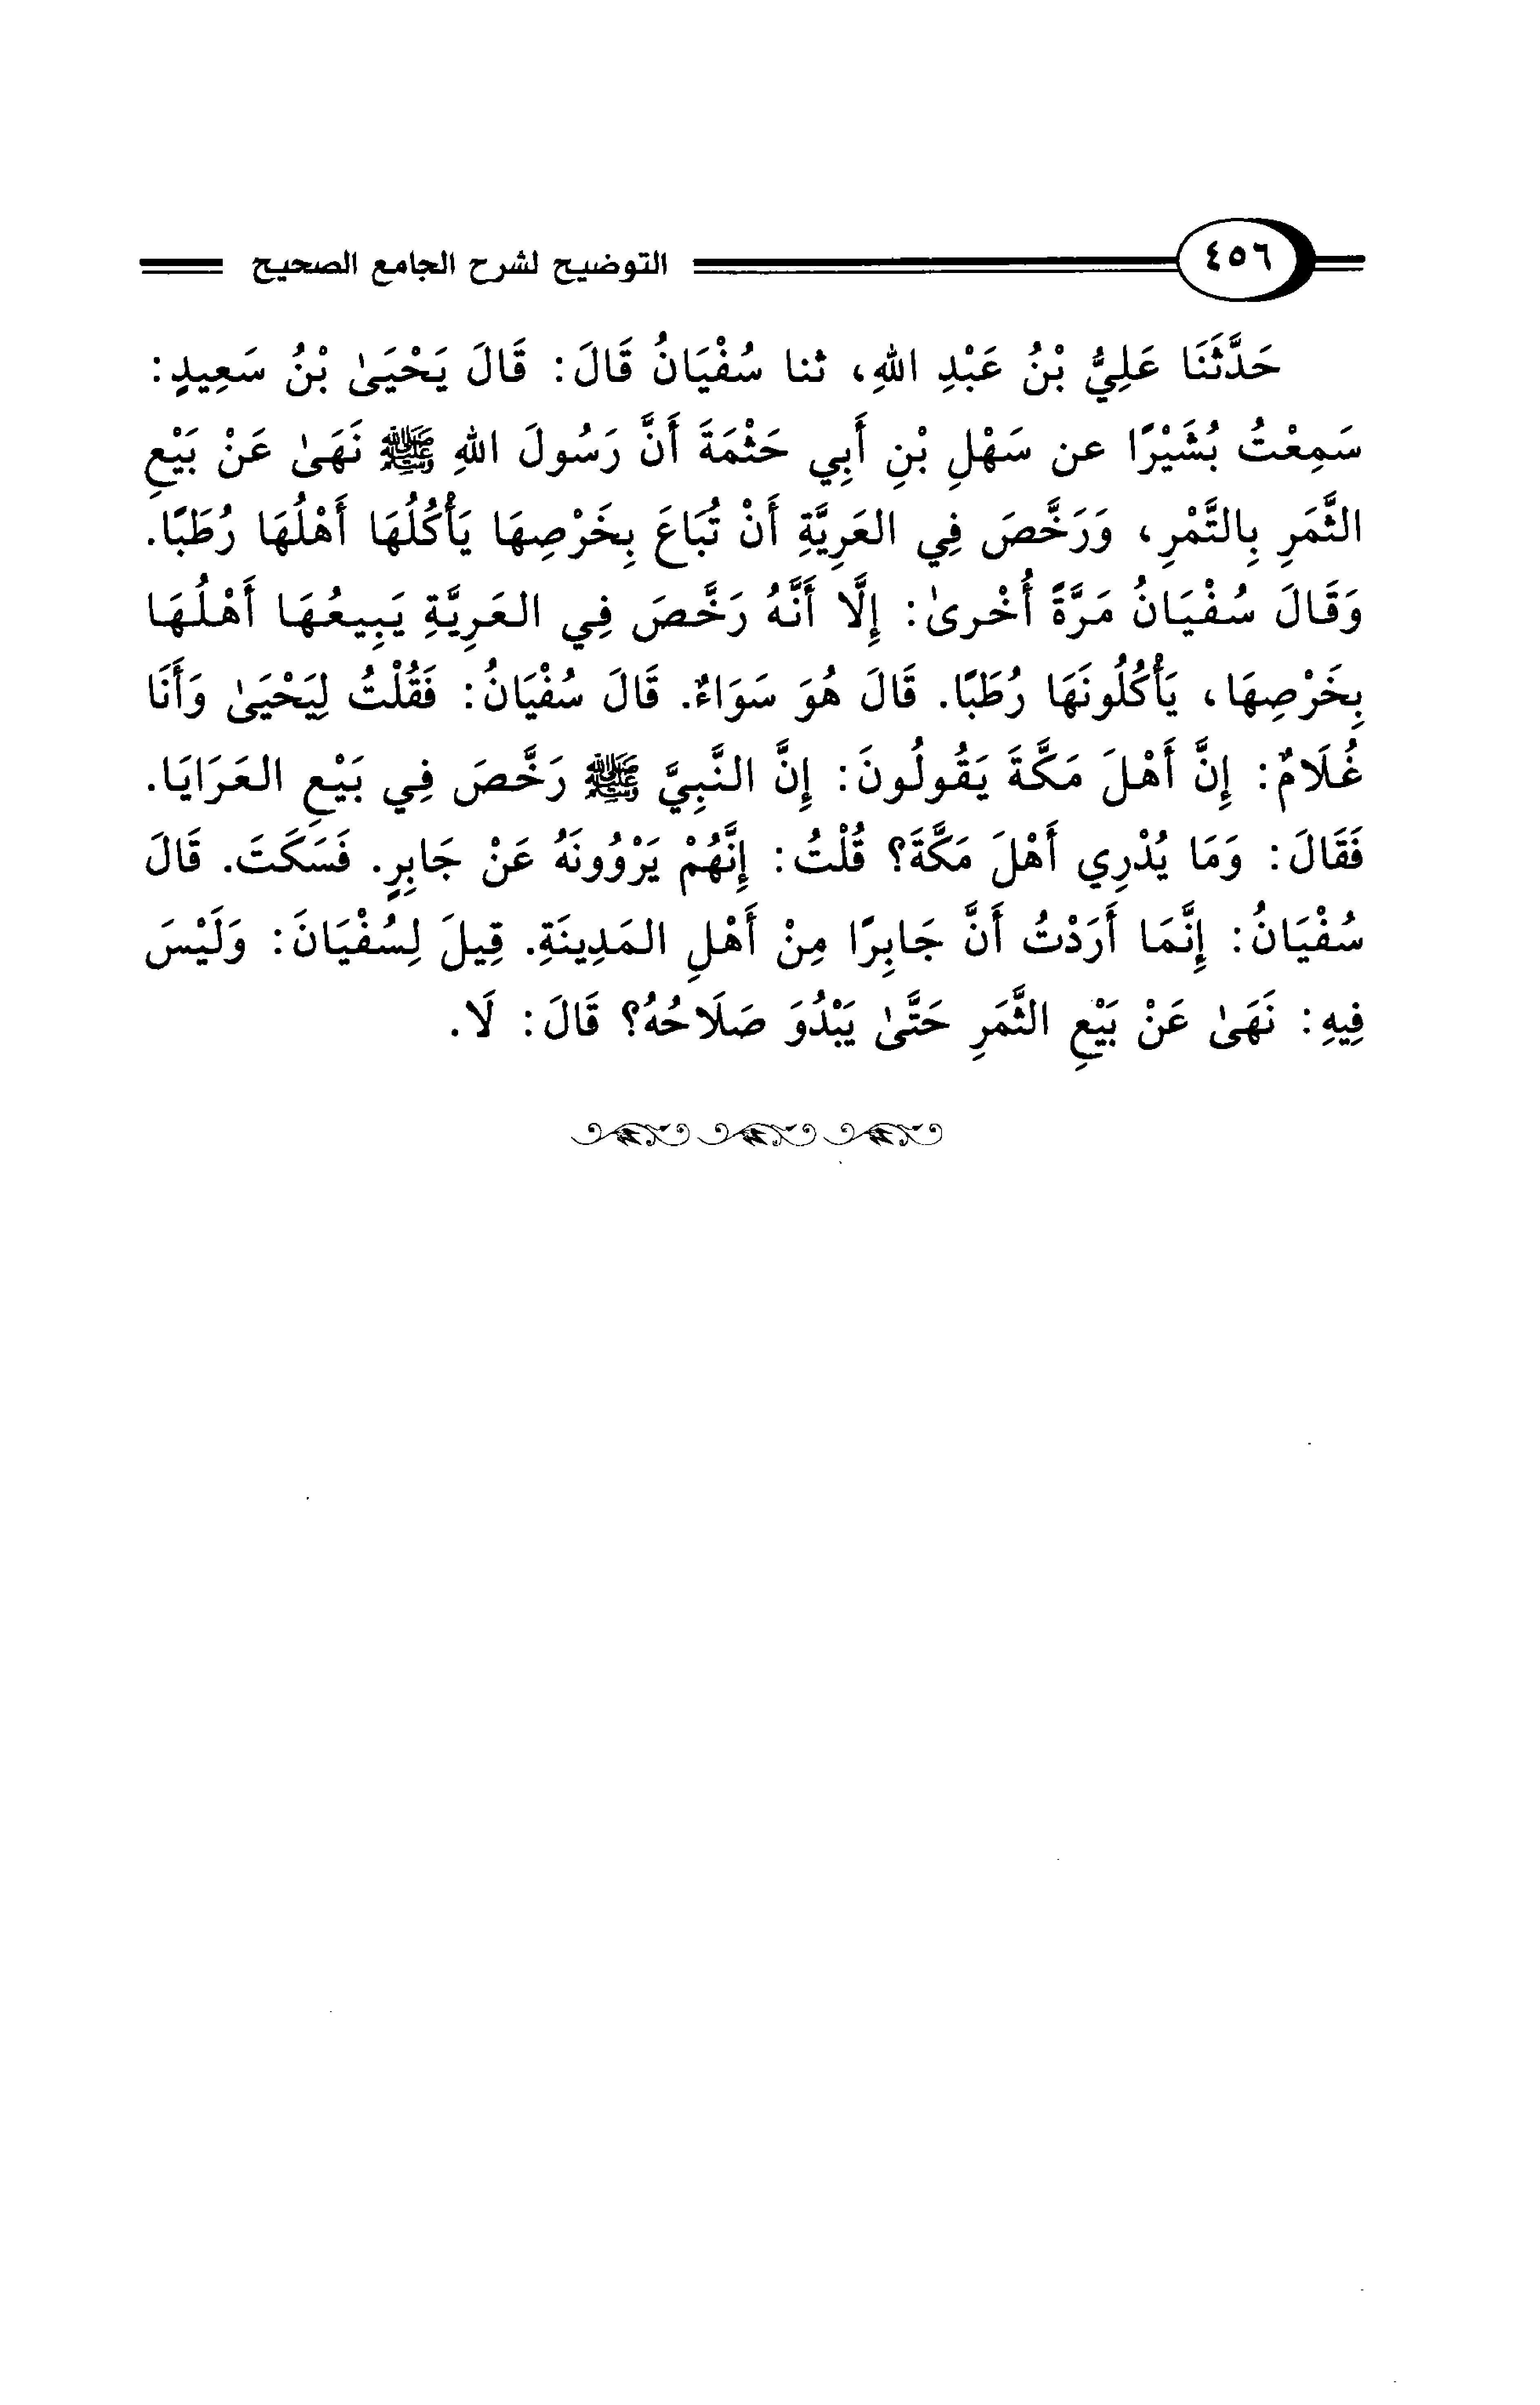 ٤٥٦ التوضيح لشرح الجامع الصحيح
حَدَّثَنَا عَلِيُّ بْنُ عَبْدِ اللهِ، ثنا سُفْيَانُ قَالَ: قَالَ يَحْيَىٰ بْنُ سَعِيدٍ:
سَمِعْتُ بُشَيْرًا عن سَهْلِ بْنِ أَبِي حَثْمَةَ أَنَّ رَسُولَ اللهِ ﷺ نَهَىٰ عَنْ بَيْعِ
الثَّمَرِ بِالتَّمْرِ، وَرَخَّصَ فِي العَرِيَّةِ أَنْ تُبَاعَ بِخَرْصِهَا يَأْكُلُهَا أَهْلُهَا رُطَبًا.
وَقَالَ سُفْيَانُ مَرَّةً أُخْرىٰ: إِلَّا أَنَّهُ رَخَّصَ فِي العَرِيَّةِ يَبِيعُهَا أَهْلُهَا
بِخَرْصِهَا، يَأْكُلُونَهَا رُطَبًا. قَالَ هُوَ سَوَاءٌ. قَالَ سُفْيَانُ: فَقُلْتُ لِيَحْيَىٰ وَأَنَا
غُلَامٌ: إِنَّ أَهْلَ مَكَّةَ يَقُولُونَ: إِنَّ النَّبِيَّ ﷺ رَخَّصَ فِي بَيْعِ العَرَايَا.
فَقَالَ: وَمَا يُدْرِي أَهْلَ مَكَّةَ؟ قُلْتُ: إِنَّهُمْ يَرْوُونَهُ عَنْ جَابِرٍ. فَسَكَتَ. قَالَ
سُفْيَانُ: إِنَّمَا أَرَدْتُ أَنَّ جَابِرًا مِنْ أَهْلِ المَدِينَةِ. قِيلَ لِسُفْيَانَ: وَلَيْسَ
فِيهِ: نَهَىٰ عَنْ بَيْعِ الثَّمَرِ حَتَّىٰ يَبْدُوَ صَلَاحُهُ؟ قَالَ: لَا.